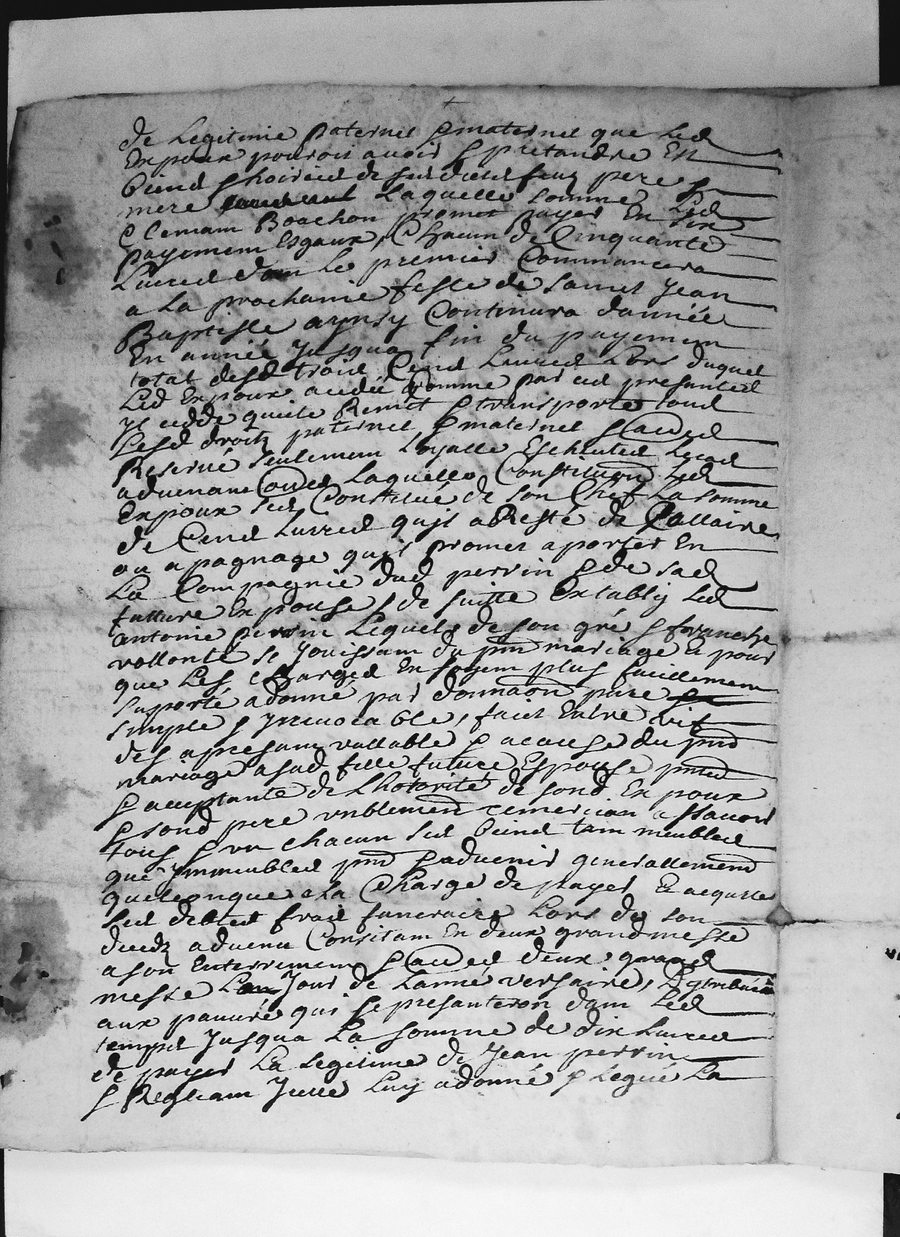 de Legitime paternel & maternel que Led
Expoux pouroit avoir & pretandre En
biend & hoiried de sesdictz feuz pere &
mere Laquelle somme Led
Clemam Bouchon promet payer En six
payemem Esgaux, Chacun de Cinquante
Livred dom Le premier Commancera
a La prochaine feste de Sainct Jean
Baptiste aynsy Continura dannée
En année Jusqua fin du payemem
total desd troid Cend Livred Lors duquel
Led Expoux acedé Comme par ced presanted
yl cedde quite Remet & transporte toud
Lesd droitz paternel & maternel
Reservé seulemem Loyalle Escheuted
advenam Laquelle Constitution Led
Expoux sest Constitué de son Chef La somme
de Cend Livred quyl a Resté de Sallaire
ou apagnage quyl promet aporter En
La Compagnie dud perrin & de sad
future Expouse, de suitte Extably Led
antoine perrin Lequel de son gré & franche
vollonté se Jouissam du pnt mariage & pour
que Les Charged En soyem plus facillemem
suporté a donné par donnaon pure
simple & Irrevocable, faict Entre vif
des apresam vallable & acause du pnt
mariage asad fille future Espouse pnted
& acceptante de Lhotorité de sond Expoux
& sond pere umblemem remercian assavoir
tous & un chacun ses biend tam meubled
que Immeubled pnt & advenir generallemem
quelconque a La Charge de payer & acquiter
ses debtes fraid funeraire Lors de son
decedz advenu Consistam En deux grand messe
a son Enterremem deux grand
messe Lan Jour de Lanné versaire, Distribuer
aux pauvre qui se presanteron dam Led
tempd Jusqua La somme de dix Livred
de payer La Legitime de Jean perrin
& Luy a donné & Legué La